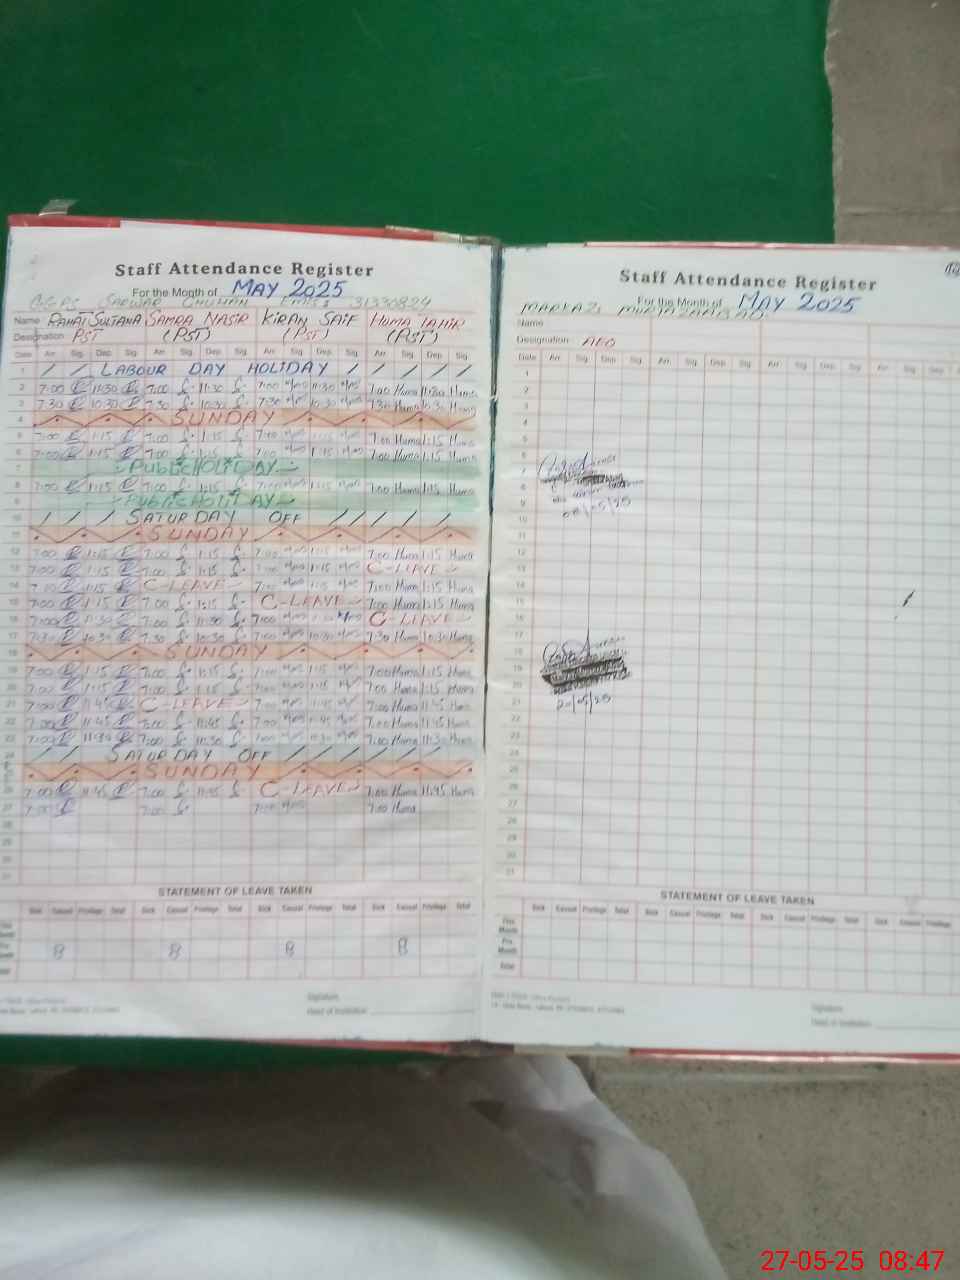 Staff Attendance Register
For the Month of MAY 2025
GGPS SARWAR CHUHAN EMIS: 31330824
Name RAHAT SULTANA SAMRA NASIR KIRAN SAIF HUMA TAHIR
Designation PST (PST) (PST) (PST)
Date Arr Sig. Dep. Sig Arr Sig. Dep. Sig. Arr Sig. Dep. Sig. Arr Sig. Dep Sig.
1 LABOUR DAY HOLIDAY
2 7:00 11:30 7:00 11:30 7:00 11:30 7:00 Huma 11:30 Huma
3 7:30 10:30 7:30 10:30 7:30 10:30 7:30 Huma 10:30 Huma
4 SUNDAY
5 7:00 1:15 7:00 1:15 7:00 1:15 7:00 Huma 1:15 Huma
6 7:00 1:15 7:00 1:15 7:00 1:15 7:00 Huma 1:15 Huma
7 Public HOLIDAY
8 7:00 1:15 7:00 1:15 7:00 1:15 7:00 Huma 1:15 Huma
9 Public HOLIDAY
10 SATURDAY OFF
11 SUNDAY
12 7:00 1:15 7:00 1:15 7:00 1:15 7:00 Huma 1:15 Huma
13 7:00 1:15 7:00 1:15 7:00 1:15 C-LEAVE
14 7:00 1:15 C-LEAVE 7:00 1:15 7:00 Huma 1:15 Huma
15 7:00 1:15 7:00 1:15 C-LEAVE 7:00 Huma 1:15 Huma
16 7:00 11:30 7:00 11:30 7:00 11:30 C-LEAVE
17 7:30 10:30 7:30 10:30 7:00 10:30 7:30 Huma 10:30 Huma
18 SUNDAY
19 7:00 1:15 7:00 1:15 7:00 1:15 7:00 Huma 1:15 Huma
20 7:00 1:15 7:00 1:15 7:00 1:15 7:00 Huma 1:15 Huma
21 7:00 11:45 C-LEAVE 7:00 11:45 7:00 Huma 11:45 Huma
22 7:00 11:45 7:00 11:45 7:00 11:45 7:00 Huma 11:45 Huma
23 7:00 11:30 7:00 11:30 7:00 11:30 7:00 Huma 11:30 Huma
24 SATURDAY OFF
25 SUNDAY
26 7:00 11:45 7:00 11:45 C-LEAVE 7:00 Huma 11:45 Huma
27 7:00 7:00 7:00 7:00 Huma
28
29
30
31
STATEMENT OF LEAVE TAKEN
Sick Casual Privilege Total Sick Casual Privilege Total Sick Casual Privilege Total Sick Casual Privilege Total
8 8 8 8
Signature
Head of Institution
Staff Attendance Register
For the Month of MAY 2025
MARKAZ: MURTAZAABAD
Name
Designation AEO
Date Arr Sig. Dep. Sig. Arr Sig. Dep. Sig. Arr Sig. Dep. Sig. Arr Sig. Dep
1
2
3
4
5
6
7
8
9
08/05/25
10
11
12
13
14
15
16
17
18
19
20
21
20/05/25
22
23
24
25
26
27
28
29
30
31
STATEMENT OF LEAVE TAKEN
Sick Casual Privilege Total Sick Casual Privilege Total Sick Casual Privilege Total Sick Casual Privilege
This Month
Pre. Month
Total
Signature
Head of Institution
27-05-25 08:47